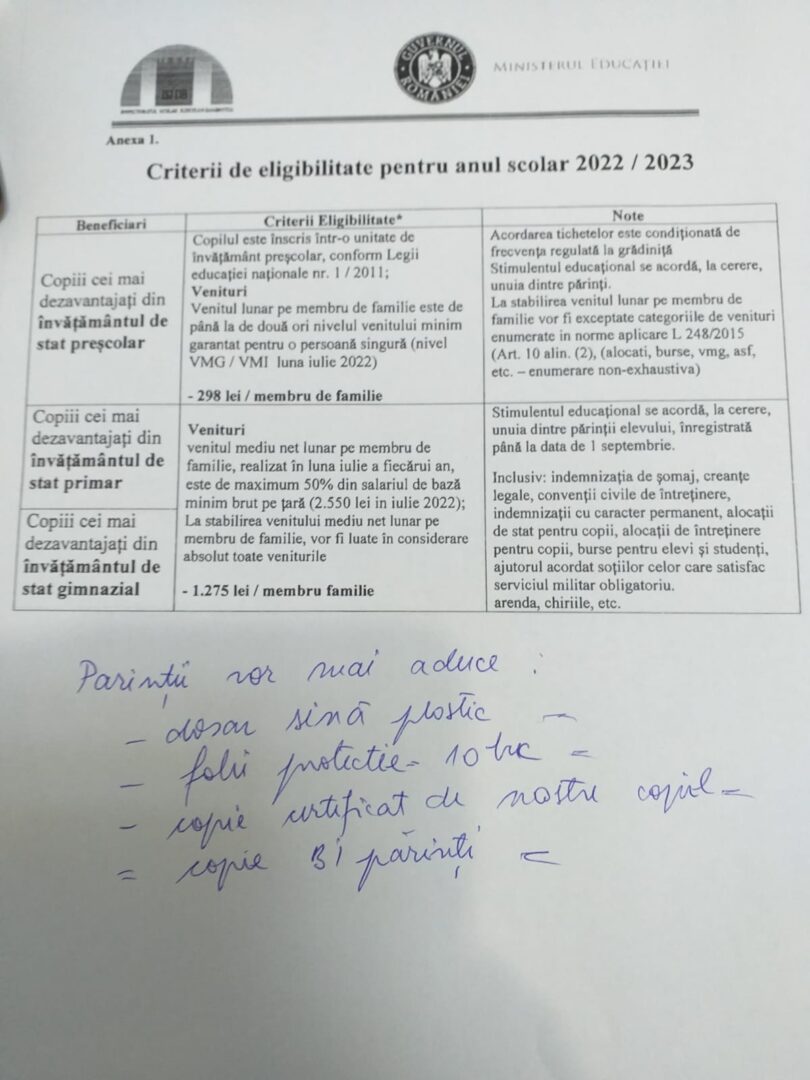 GUVERNUL ROMÂNIEI
MINISTERUL EDUCAȚIEI
Anexa 1.
Criterii de eligibilitate pentru anul scolar 2022 / 2023
Beneficiari
Criterii Eligibilitate*
Note
Copiii cei mai
dezavantajați din
învățământul de
stat preșcolar
Copilul este înscris într-o unitate de
învățământ preșcolar, conform Legii
educației naționale nr. 1 / 2011;
Venituri
Venitul lunar pe membru de familie este de
până la de două ori nivelul venitului minim
garantat pentru o persoană singură (nivel
VMG / VMI luna iulie 2022)
- 298 lei / membru de familie
Acordarea tichetelor este condiționată de
frecvența regulată la grădiniță
Stimulentul educațional se acordă, la cerere,
unuia dintre părinți.
La stabilirea venitul lunar pe membru de
familie vor fi exceptate categoriile de venituri
enumerate in norme aplicare L 248/2015
(Art. 10 alin. (2), (alocati, burse, vmg, asf,
etc. – enumerare non-exhaustiva)
Copiii cei mai
dezavantajați din
învățământul de
stat primar
Copiii cei mai
dezavantajați din
învățământul de
stat gimnazial
Venituri
venitul mediu net lunar pe membru de
familie, realizat în luna iulie a fiecărui an,
este de maximum 50% din salariul de bază
minim brut pe țară (2.550 lei in iulie 2022);
La stabilirea venitului mediu net lunar pe
membru de familie, vor fi luate în considerare
absolut toate veniturile
- 1.275 lei / membru familie
Stimulentul educațional se acordă, la cerere,
unuia dintre părinții elevului, înregistrată
până la data de 1 septembrie.
Inclusiv: indemnizația de șomaj, creanțe
legale, convenții civile de întreținere,
indemnizații cu caracter permanent, alocații
de stat pentru copii, alocații de întreținere
pentru copii, burse pentru elevi și studenți,
ajutorul acordat soțiilor celor care satisfac
serviciul militar obligatoriu.
arenda, chiriile, etc.
Parinții vor mai aduce :
- dosar sină plastic -
- folii protectie - 10 buc =
- copie certificat de nastere copil =
= copie BI părinți =